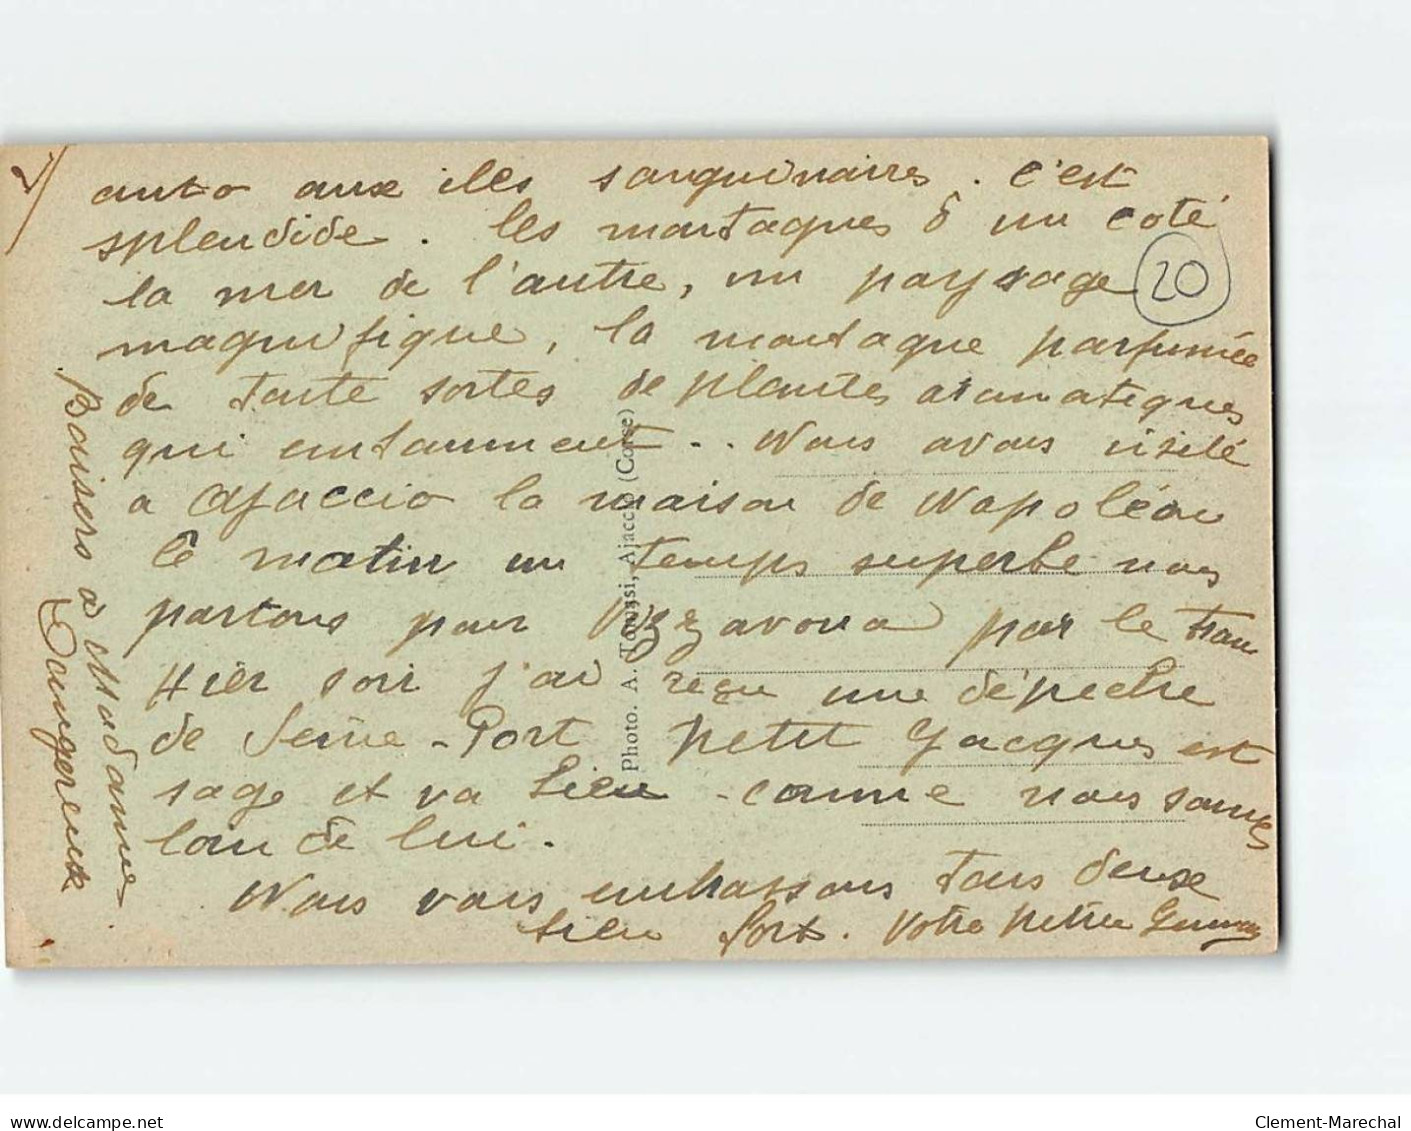 2/
auto aux iles sanguinaires. C'est
splendide. les montagnes d'un coté
la mer de l'autre, un paysage
magnifique, la montagne parfumée
de toute sortes de plantes aromatiques
qui embaument... Nous avons visité
a Ajaccio la maison de Napoléon
Ce matin un temps superbe nous
partons pour Vizzavona par le train
Hier soir j'ai reçu une dépeche
de Seine-Port petit Jacques est
sage et va bien - comme nous sommes
loin de lui.
Nous vous embrassons tous deux
bien fort. Votre petite
Baisers a Madame
Dangereux
20
Photo. A. Tomasi, Ajaccio (Corse)
www.delcampe.net
Clement-Marechal